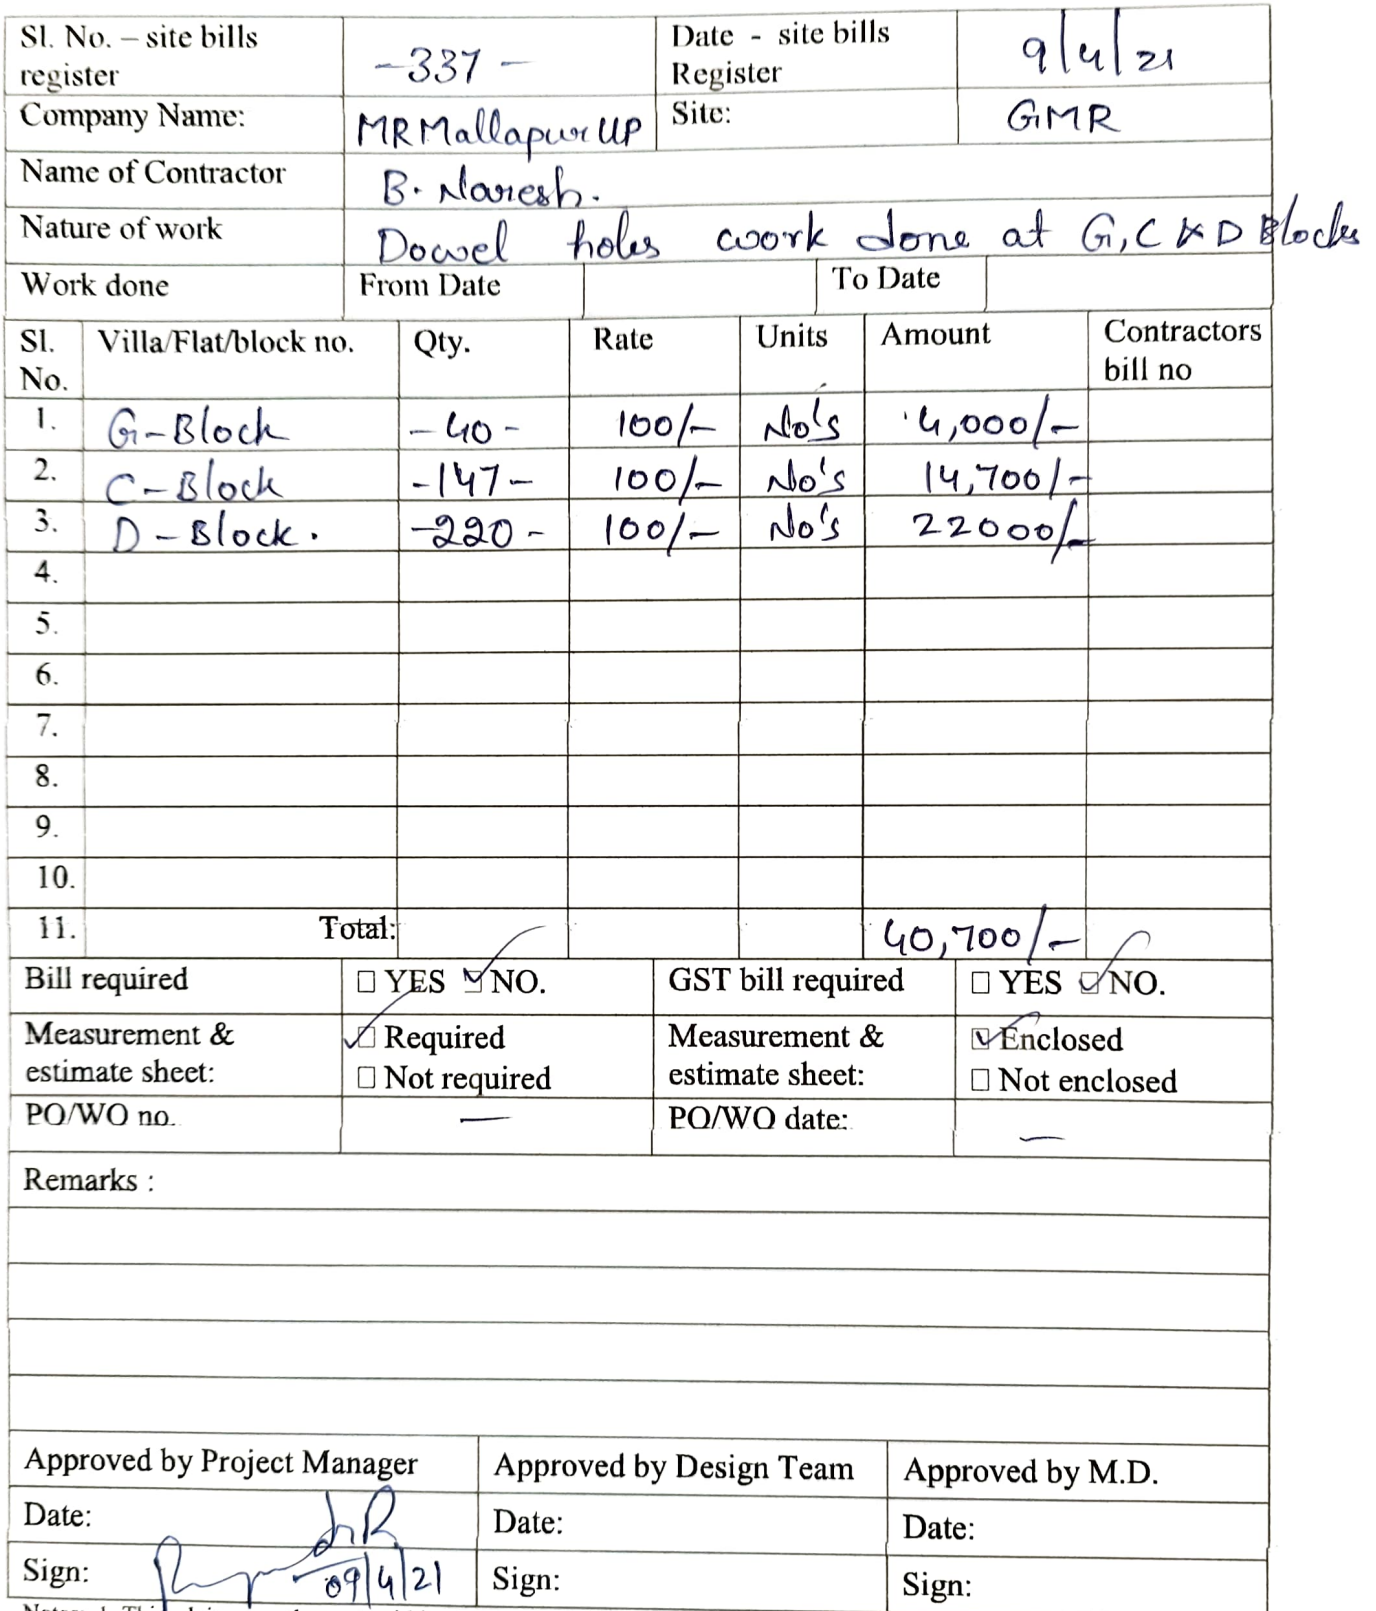 Sl. No. – site bills register -337- Date - site bills Register 9/4/21
Company Name: MR Mallapur UP Site: GMR
Name of Contractor B. Naresh.
Nature of work Dowel holes work done at G, C & D Blocks
Work done From Date To Date
Sl. No. Villa/Flat/block no. Qty. Rate Units Amount Contractors bill no
1. G-Block -40- 100/- No's 4,000/-
2. C-Block -147- 100/- No's 14,700/-
3. D-Block. -220- 100/- No's 22000/-
4.
5.
6.
7.
8.
9.
10.
11. Total: 40,700/-
Bill required ☐ YES ☑ NO. GST bill required ☐ YES ☑ NO.
Measurement & estimate sheet: ☑ Required ☐ Not required Measurement & estimate sheet: ☑ Enclosed ☐ Not enclosed
PO/WO no. — PO/WO date: —
Remarks :
Approved by Project Manager Approved by Design Team Approved by M.D.
Date: Date: Date:
Sign: 09/4/21 Sign: Sign: